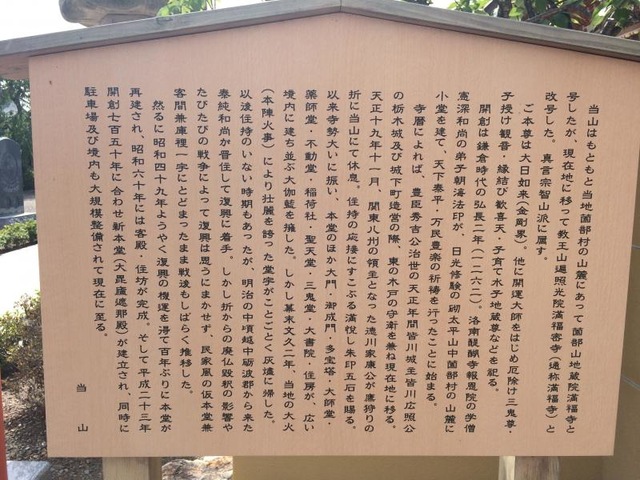 当山はもともと当地薗部村の山麓にあって薗部山地蔵院満福寺と
号したが、現在地に移って教王山遍照光院満福密寺（通称満福寺）と
改号した。真言宗智山派に属す。
ご本尊は大日如来（金剛界）。他に開運大師をはじめ厄除け三鬼尊・
子授け観音・縁結び歓喜天・子育て水子地蔵尊などを祀る。
開創は鎌倉時代の弘長二年（一二六二）。洛南醍醐寺報恩院の学僧
憲深和尚の弟子朝海法印が、日光修験の砌太平山中薗部村の山麓に
小堂を建て、天下泰平・万民豊楽の祈祷を行ったことに始まる。
寺暦によれば、豊臣秀吉公治世の天正年間皆川城主皆川広照公
の栃木城及び城下町造営の際、東の木戸の守衛を兼ね現在地に移る。
天正十九年十一月、関東八州の領主となった徳川家康公が鷹狩りの
折に当山にて休息。住持の応接にすこぶる満悦し朱印五石を賜る。
以来寺勢大いに振い、本堂のほか大門・御成門・多宝塔・大師堂・
薬師堂・不動堂・稲荷社・聖天堂・三鬼堂・大書院・住房が、広い
境内に建ち並ぶ大伽藍を擁した。しかし幕末文久二年、当地の大火
（本陣火事）により壮麗を誇った堂宇がことごとく灰燼に帰した。
以後住持のいない時期もあったが、明治の中頃越中砺波郡から来た
泰純和尚が晋住して復興に着手。しかし折からの廃仏毀釈の影響や
たびたびの戦争によって復興は思うにまかせず、民家風の仮本堂兼
客間兼庫裡一宇にとどまったまま戦後もしばらく推移した。
然るに昭和四十九年ようやく復興の機運を得て百年ぶりに本堂が
再建され、昭和六十年には客殿・住坊が完成。そして平成二十三年
開創七百五十年に合わせ新本堂（大毘盧遮那殿）が建立され、同時に
駐車場及び境内も大規模整備されて現在に至る。
当山